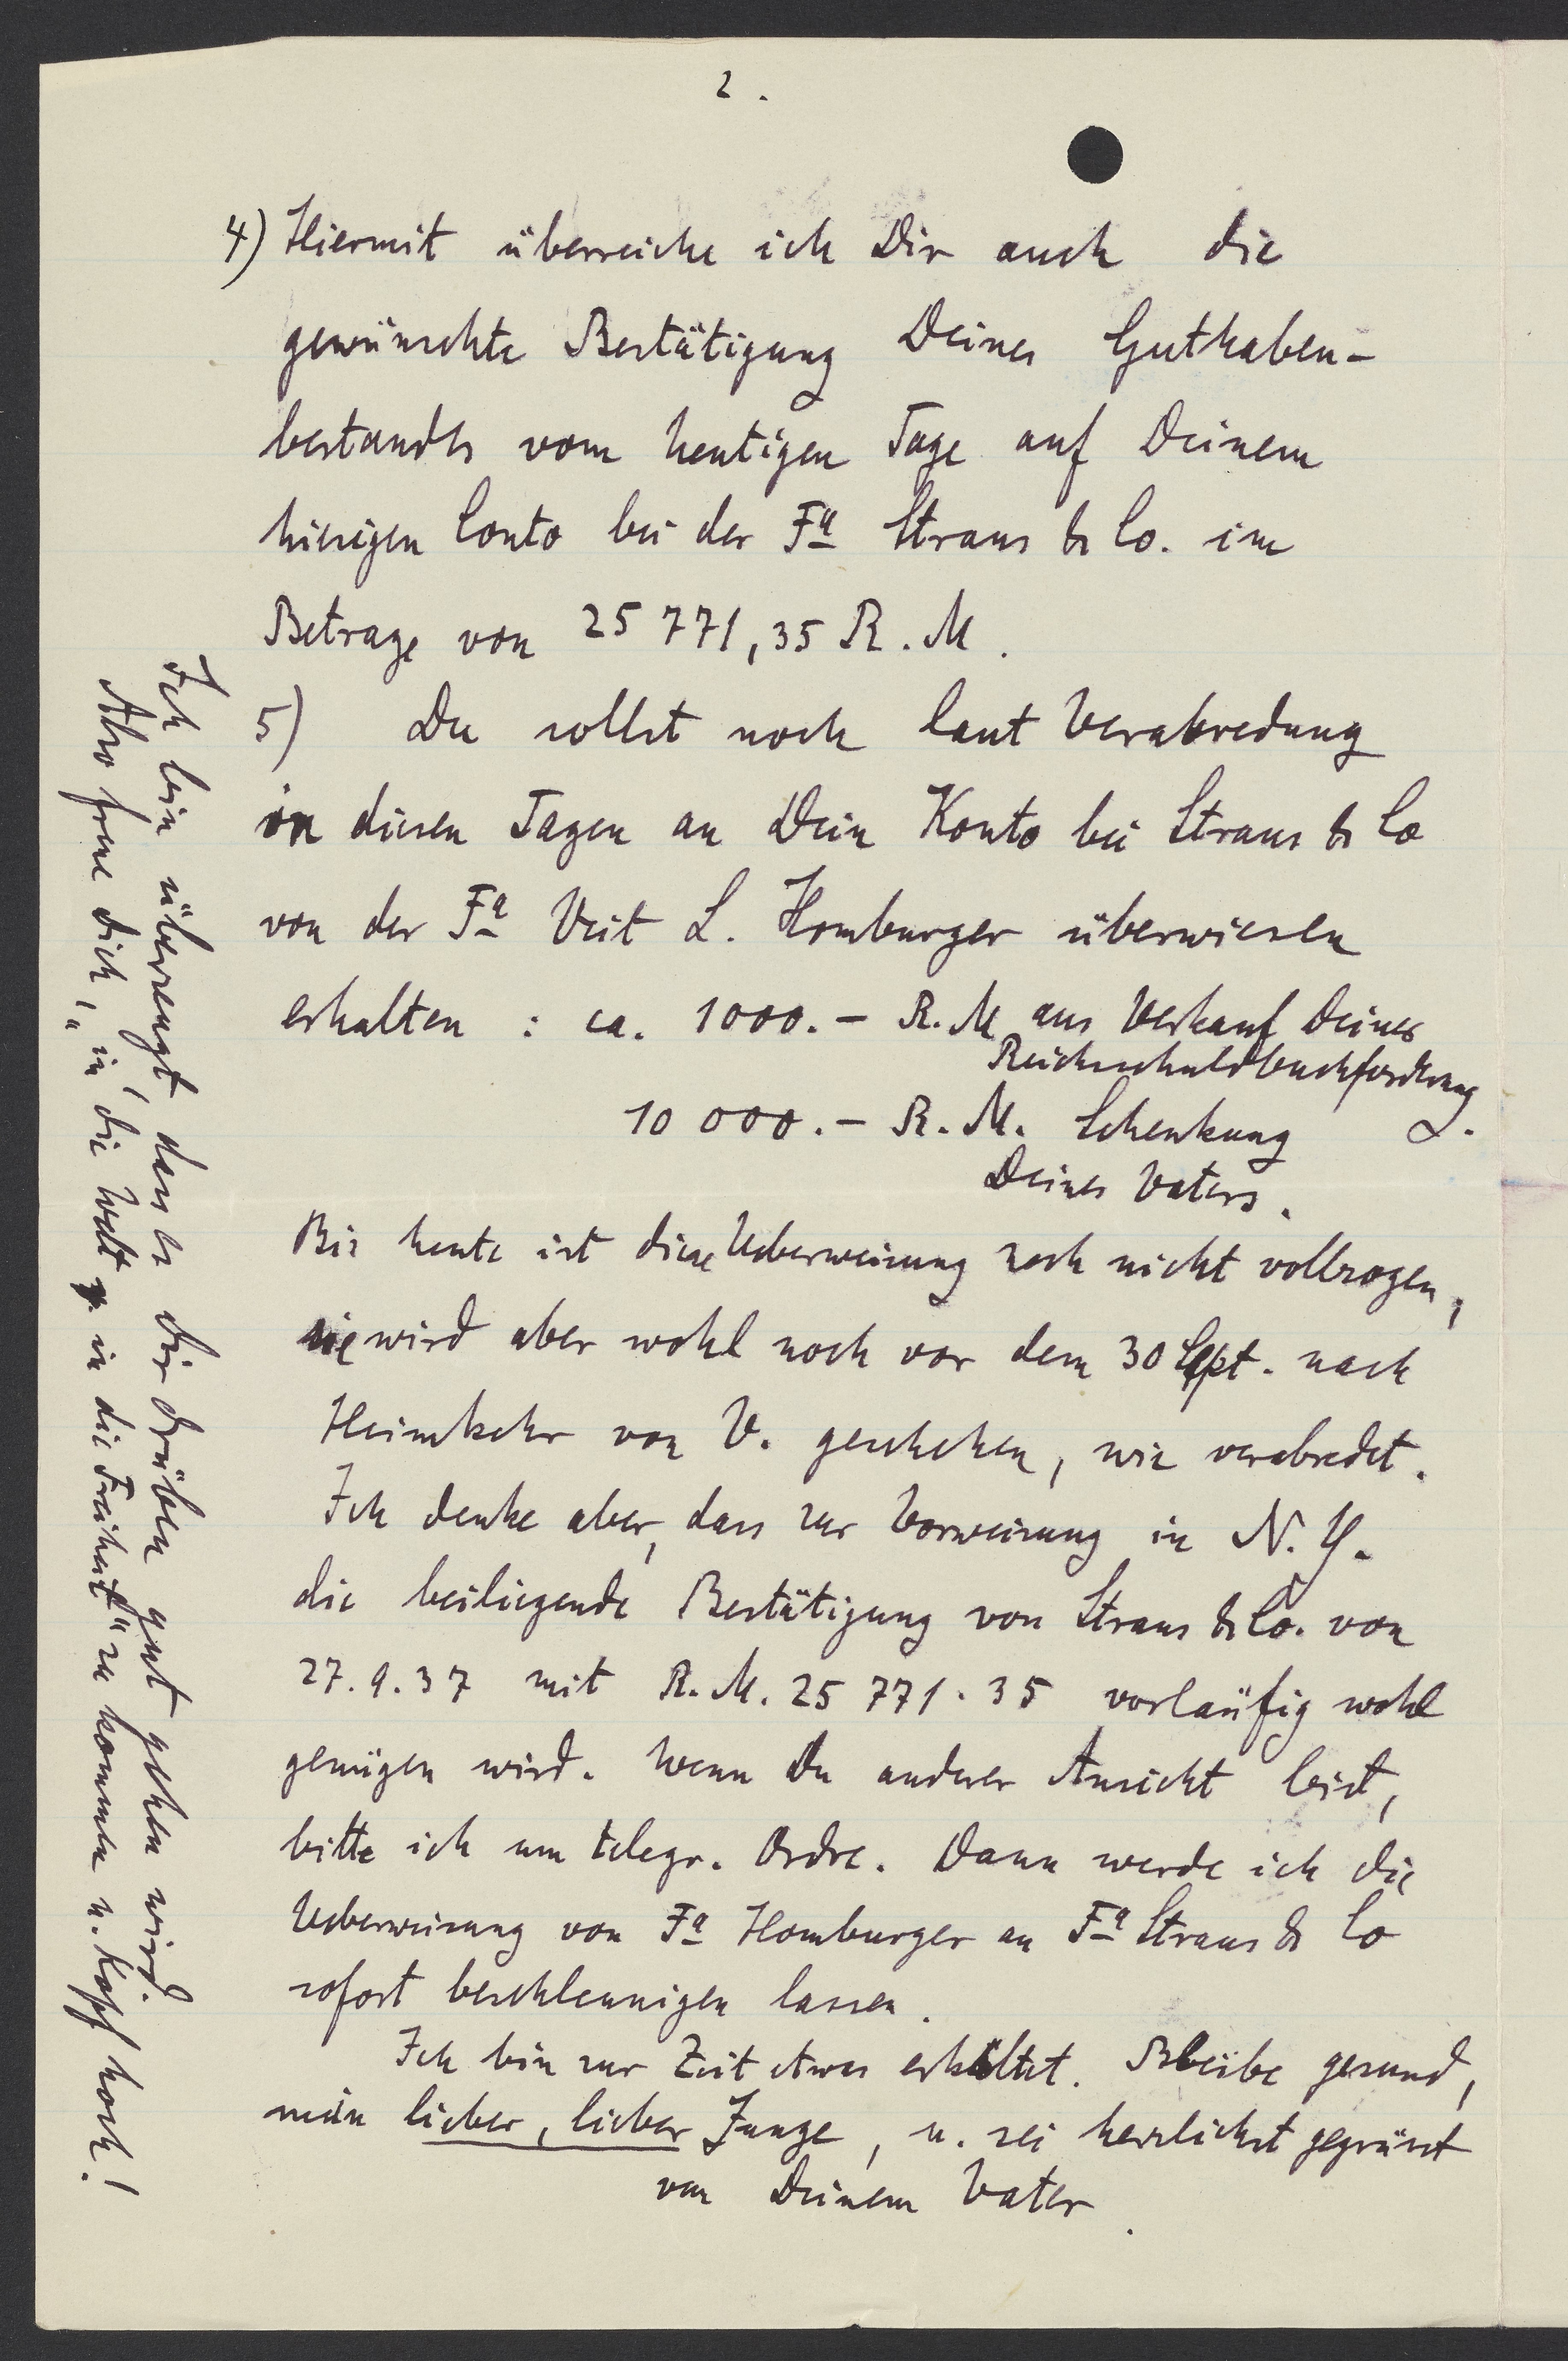 2.
4) Hiermit überreiche ich Dir auch die
gewünschte Bestätigung Deines Guthaben-
bestandes vom heutigen Tage auf Deinem
hiesigen Conto bei der Fa Straus & Co. im
Betrage von 25 771,35 R.M.
5) Du sollst noch laut Verabredung
in diesen Tagen an Dein Konto bei Straus & Co
von der Fa Veit L. Homburger überwiesen
erhalten : ca. 1000.- R.M aus Verkauf Deiner
Reichsschuldbuchforderung
10 000.- R.M. Schenkung
Deines Vaters.
Bis heute ist diese Ueberweisung noch nicht vollzogen,
sie wird aber wohl noch vor dem 30 Sept. nach
Heimkehr von V. geschehen, wie verabredet.
Ich denke aber, dass zur Vorweisung in N.Y.
die beiliegende Bestätigung von Straus & Co. von
27.9.37 mit R.M. 25 771.35 vorläufig wohl
genügen wird. Wenn Du anderer Ansicht bist,
bitte ich um telegr. Ordre. Dann werde ich die
Ueberweisung von Fa Homburger an Fa Straus & Co
sofort beschleunigen lassen.
Ich bin zur Zeit etwas erkältet. Bleibe gesund,
mein lieber, lieber Junge, u. sei herzlichst gegrüsst
von Deinem Vater.
Ich bin überzeugt, dass es Dir drüben gut gehen wird.
Also freue dich, "in die Welt in die Freiheit" zu kommen u. Kopf hoch!